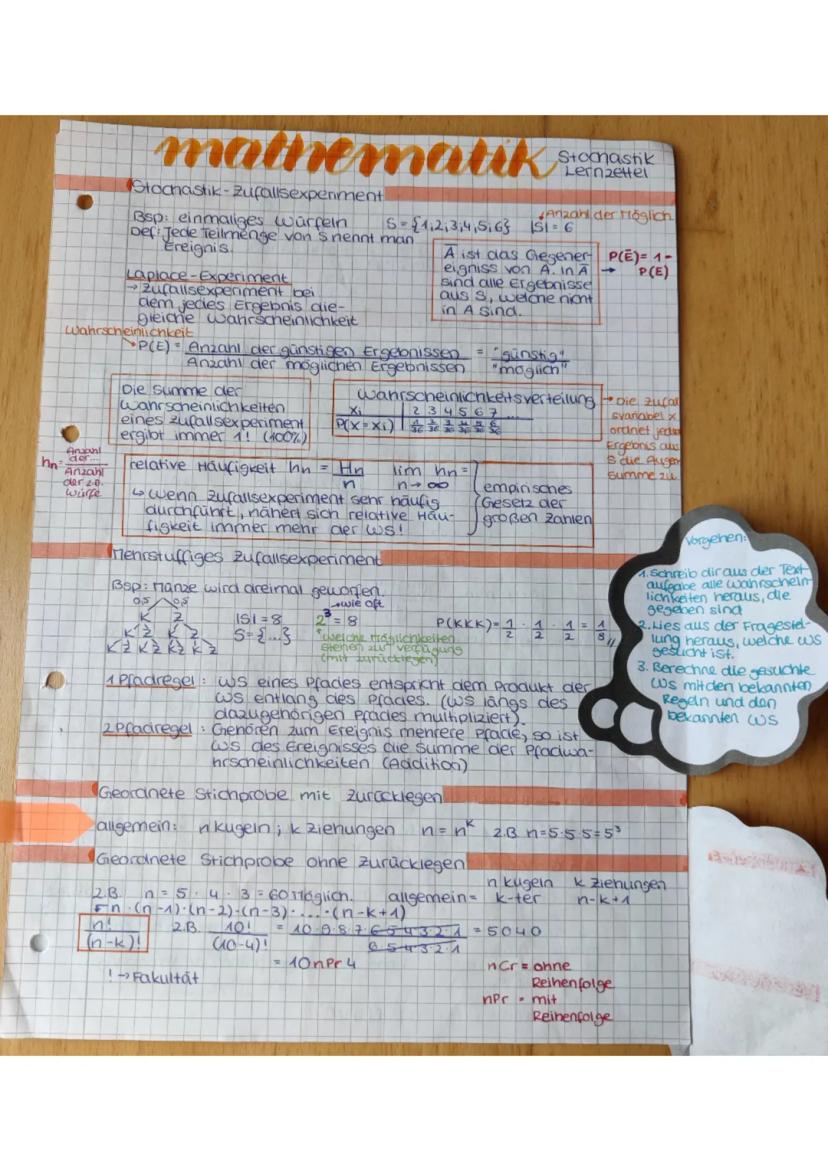 mathematik Stochastik
Lernzettel
Stochastik-Zufallsexperiment
Bsp: einmaliges Würfeln S={1,2,3,4,5,6} |S|=6
Anzahl der Möglich.
Def: Jede Teilmenge von S nennt man
Ereignis.
Ā ist das Gegener-
eigniss von A. In Ā
sind alle Ergebnisse
aus S, welche nicht
in A sind.
→ P(Ē)= 1-
P(E)
Laplace-Experiment
→ Zufallsexperiment bei
dem jedes Ergebnis die-
gleiche Wahrscheinlichkeit
Wahrscheinlichkeit
→ P(E) = Anzahl der günstigen Ergebnissen / Anzahl der möglichen Ergebnissen = "günstig" / "möglich"
Die Summe der
Wahrscheinlichkeiten
eines Zufallsexperiment
ergibt immer 1! (100%)
Wahrscheinlichkeitsverteilung
xi | 2 3 4 5 6 7 ...
P(X=xi) | 1/36 2/36 3/36 4/36 5/36 6/36
→ Die Zufall
svariabel x
ordnet jedem
Ergebnis aus
S die Augen
summe zu
hn = Anzahl der... / Anzahl der z.B. Würfe
relative Häufigkeit hn = Hn/n lim n→∞ hn =
↳ Wenn Zufallsexperiment sehr häufig
durchführt, nähert sich relative Häu-
figkeit immer mehr der WS!
empirisches
Gesetz der
großen Zahlen
Mehrstufiges Zufallsexperiment
Bsp: Münze wird dreimal geworfen.
0,5 0,5
K Z
K Z K Z
K Z K Z K Z K Z
|S|=8
S={...}
→ wie oft
2³ = 8
welche Möglichkeiten
stehen zur Verfügung
(mit zurücklegen)
P(KKK)= 1/2 · 1/2 · 1/2 = 1/8
1 Pfadregel: WS eines Pfades entspricht dem Produkt der
WS entlang des Pfades. (WS längs des
dazugehörigen Pfades multipliziert).
2 Pfadregel: Gehören zum Ereignis mehrere Pfade, so ist
WS des Ereignisses die Summe der Pfadwa-
hrscheinlichkeiten (Addition)
Vorgehen:
1. Schreib dir aus der Text-
aufgabe alle Wahrschein-
lichkeiten heraus, die
gegeben sind
2. Lies aus der Fragestel-
lung heraus, welche WS
gesucht ist.
3. Berechne die gesuchte
WS mit den bekannten
Regeln und den
bekannten WS
Geordnete Stichprobe mit Zurücklegen
allgemein: n Kugeln; k Ziehungen n = n^k z.B n=5·5·5=5³
Geordnete Stichprobe ohne Zurücklegen
z.B. n = 5 · 4 · 3 = 60 Möglich. allgemein= n Kugeln k Ziehungen
k-ter n-k+1
=n·(n-1)·(n-2)·(n-3)·...·(n-k+1)
n!/(n-k)! z.B. 10!/(10-4)! = 10·9·8·7·6·5·4·3·2·1 / 6·5·4·3·2·1 = 5040
= 10nPr4
! → Fakultät
nCr = ohne
Reihenfolge
nPr = mit
Reihenfolge